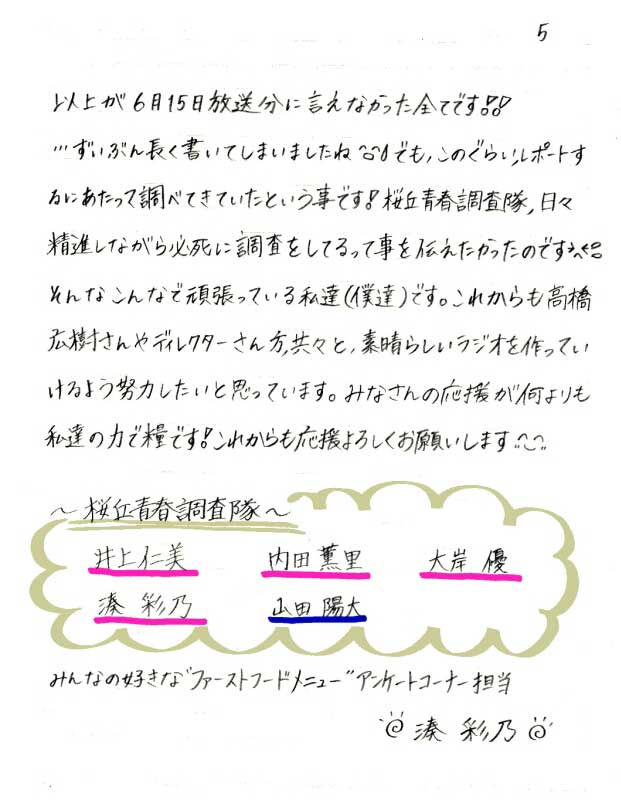 5
以上が6月15日放送分に言えなかった全てです!!
…ずいぶん長く書いてしまいましたね^^;でも、このぐらいレポートす
るにあたって調べてきていたという事です!桜丘青春調査隊、日々
精進しながら必死に調査をしてるって事を伝えたかったのです
そんなこんなで頑張っている私達(僕達)です。これからも高橋
広樹さんやディレクターさん方、共々と、素晴らしいラジオを作ってい
けるよう努力したいと思っています。みなさんの応援が何よりも
私達の力で糧です!これからも応援よろしくお願いします
～桜丘青春調査隊～
井上仁美 内田薫里 大岸優
湊彩乃 山田陽大
みんなの好きな"ファーストフードメニュー"アンケートコーナー担当
湊 彩乃